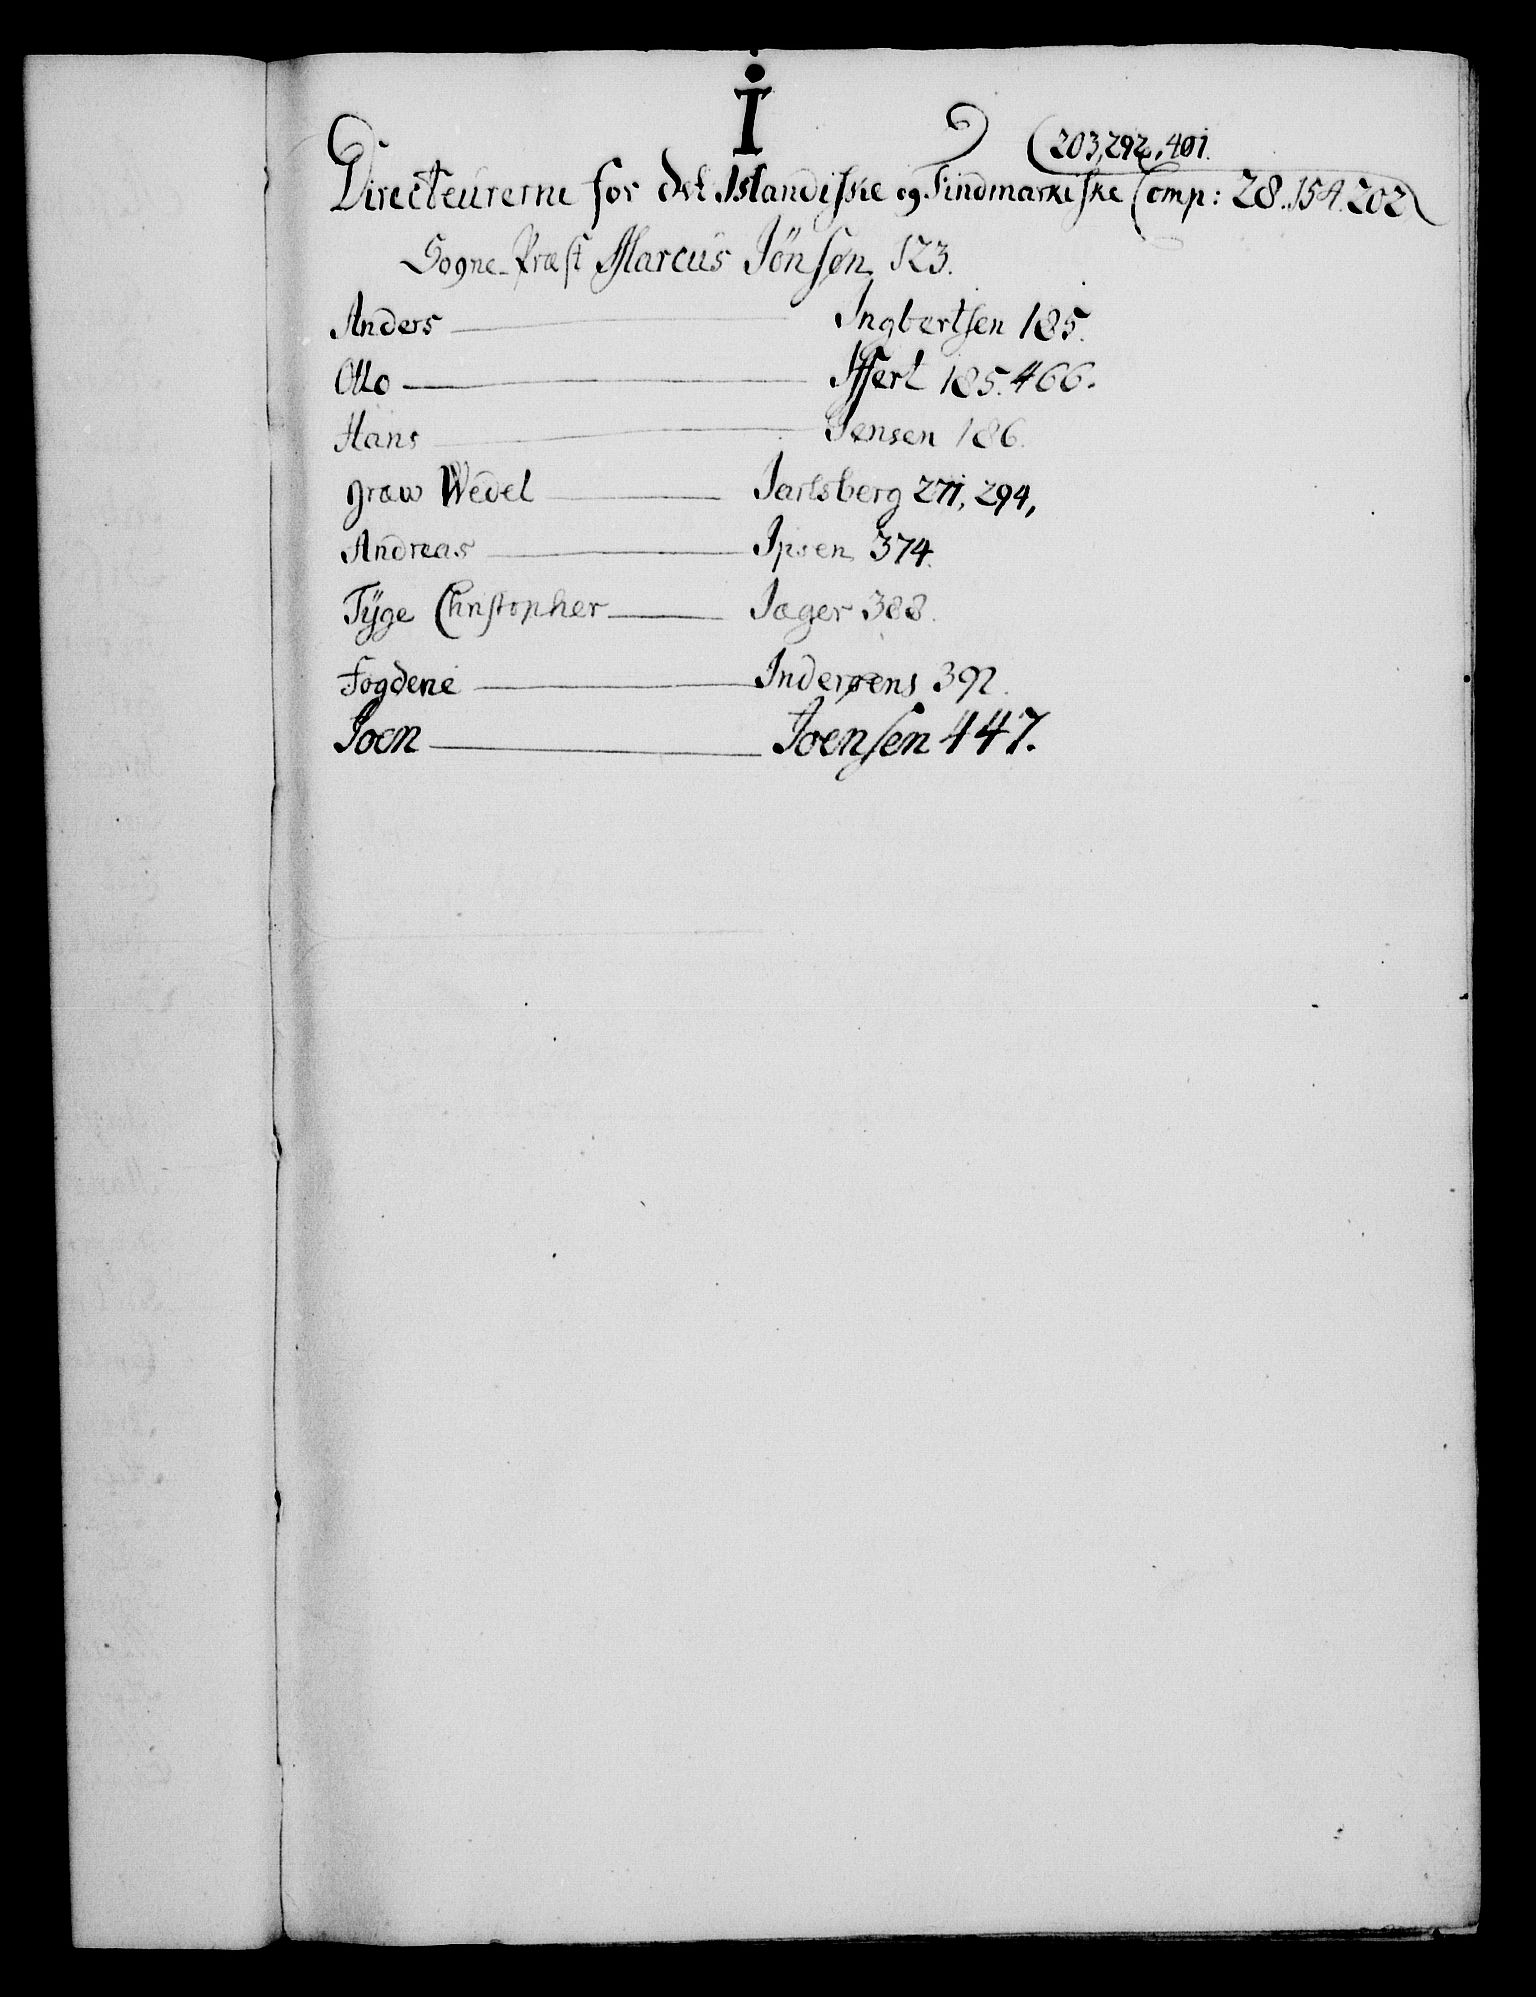 I
(203, 292, 401.
Directeurerne for det Islandiske og Findmarkeske Comp: 28. 154. 202
Sogne-Præst Marcus Jönsøn 123.
Anders — Ingbertsen 185.
Otto — Iffert 185. 466.
Hans — Jensen 186.
graw Wedel — Jarlsberg 271, 294,
Andreas — Ipsen 374.
Tÿge Christopher — Jæger 388.
Fogdene — Inderøens 392.
Joen — Joensen 447.